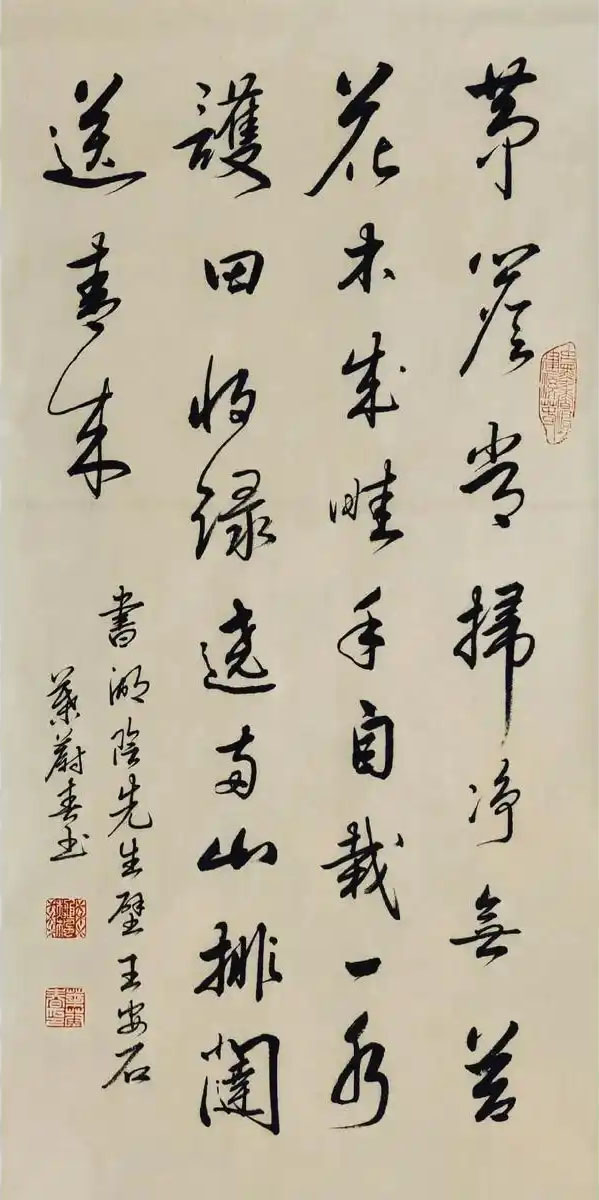 茅簷常掃净無苔
花木成畦手自栽一水
護田将绿遶两山排闥
送青来
書湖陰先生壁王安石
葉蔚春